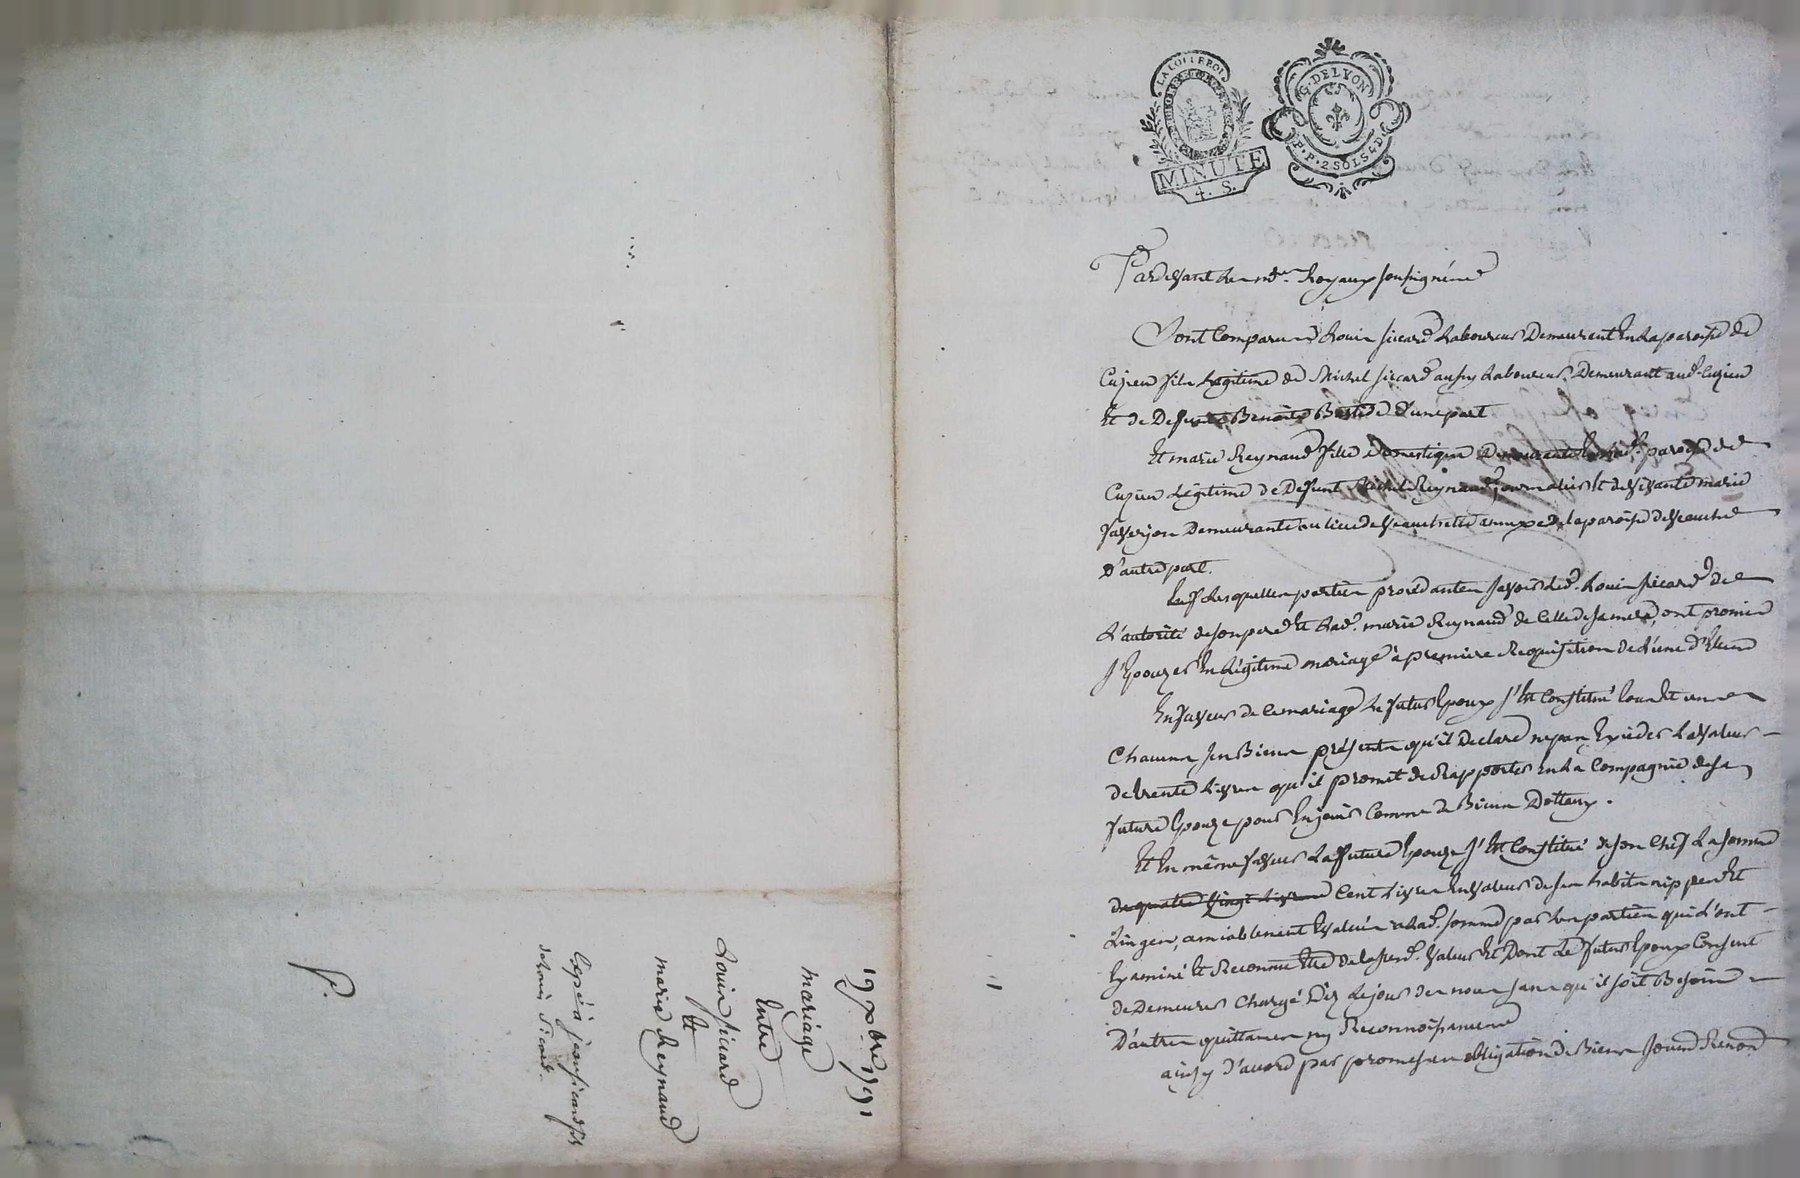 LA LOI LE ROI
MINUTE
4. S.
G. DE LYON
P. P. 2 SOLS 4 D
Pardevant les nres. Royaux soussignés
Sont Comparus Louis siccard Laboureur Demeurent En La paroisse de
Cuzieu fils Legitime de Michel siccard aussy Laboureur Demeurant aud. Cuzieu
Et de Defunte Benoite Bastide D'une part
Et marie Reynaud fille Domestique Demeurante En lad. paroisse de
Cuzieu Légitime de Defunt Michel Reynaud journalier Et de vivante marie
faverjon Demeurante au lieu de Veauchette annexe de la paroisse de Veauche
D'autre part.
Lesquelles parties procedantes savoir Led. Louis siccard de
L'autorité de son pere Et Lad. marie Reynaud de Celle de sa mere, ont promis
s'Epouzer En Légitime mariage à premiere Requisition de L'une d'Elles
En faveur de Ce mariage Le futur Epoux s'Est Constitué tous Et uns
Chacuns ses Biens présents qu'il Declare ne pas Exceder La valeur
de trente Livres qu'il promet de Rapporter En La Compagnie de sa
future Epouze pour En jouir Comme de Biens Dotteaux.
Et En même faveur La future Epouze s'Est Constitué de son Chef La somme
de quatre Vingt Livres Cent Livres En valeur de ses habits nippes Et
Linges, amiablement Evalués a Lad. somme par Les parties qui L'ont
Examiné Et Reconnu Etre de la susd. valeur Et Dont Le futur Epoux Consent
de Demeurer Chargé Dez Le jour des nouces sans qu'il soit Besoin
D'autres quittances ny Reconnoissances
ainsy d'accord par promesses obligation de Biens soumd. Renond.
19 xbre 1791
mariage
Entre
Louis siccard
Et
marie Reynaud
Exp. à jean sicard fils
de Louis Sicard